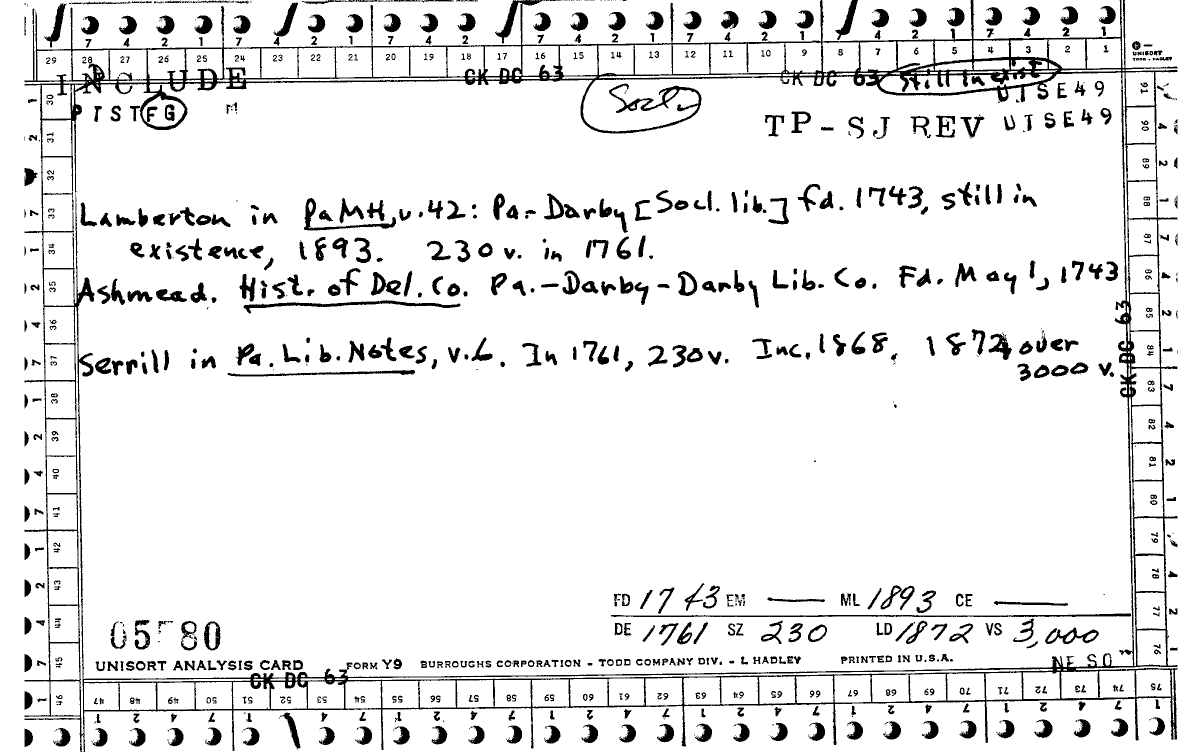 7 4 2 1 7 4 2 1 7 4 2 1 7 4 2 1 7 4 2 1 7 4 2 1 7 4 2 1
29 28 27 26 25 24 23 22 21 20 19 18 17 16 15 14 13 12 11 10 9 8 7 6 5 4 3 2 1
UNISORT
TODD - HADLEY
INCLUDE CK DC 63 CK DC 63 Still in exist
PTSTFG M Socl. UISE49
TP-SJ REV UISE49
Lamberton in PaMH, v.42: Pa-Darby [Socl. lib.] fd. 1743, still in
existence, 1893. 230 v. in 1761.
Ashmead. Hist. of Del. Co. Pa.-Darby-Darby Lib. Co. Fd. May 1, 1743
Serrill in Pa. Lib. Notes, v.6. In 1761, 230 v. Inc. 1868. 1872, over
3000 v.
CK DC 63
FD 1743 EM — ML 1893 CE —
05 80 DE 1761 SZ 230 LD 1872 VS 3,000
UNISORT ANALYSIS CARD FORM Y9 BURROUGHS CORPORATION - TODD COMPANY DIV. - L HADLEY PRINTED IN U.S.A. NE SO
CK DC 63
47 48 49 50 51 52 53 54 55 56 57 58 59 60 61 62 63 64 65 66 67 68 69 70 71 72 73 74 75
1 2 4 7 1 2 4 7 1 2 4 7 1 2 4 7 1 2 4 7 1 2 4 7 1 2 4 7 1